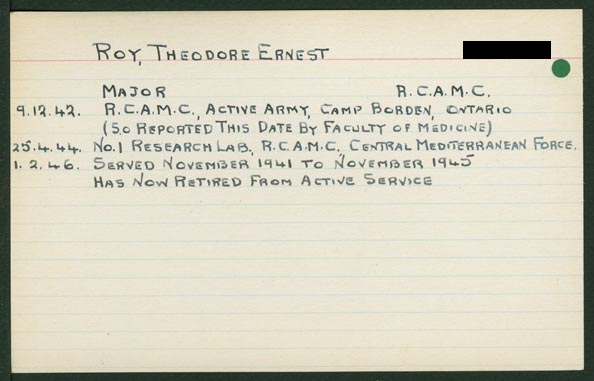 ROY, THEODORE ERNEST
MAJOR R.C.A.M.C.
9.12.42. R.C.A.M.C., ACTIVE ARMY, CAMP BORDEN, ONTARIO
(SO REPORTED THIS DATE BY FACULTY OF MEDICINE)
25.4.44. NO.1 RESEARCH LAB, R.C.A.M.C. CENTRAL MEDITERRANEAN FORCE.
1.2.46. SERVED NOVEMBER 1941 TO NOVEMBER 1945
HAS NOW RETIRED FROM ACTIVE SERVICE